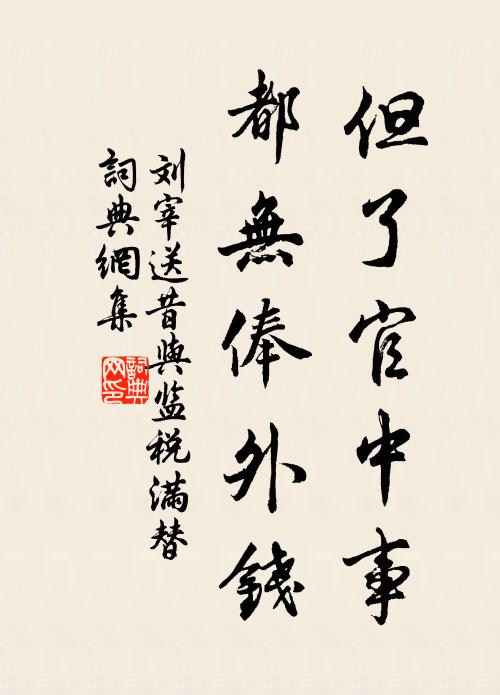 但了官中事
都無俸外錢
刘宰送昔與监税滿替
詞典網集
詞典网印